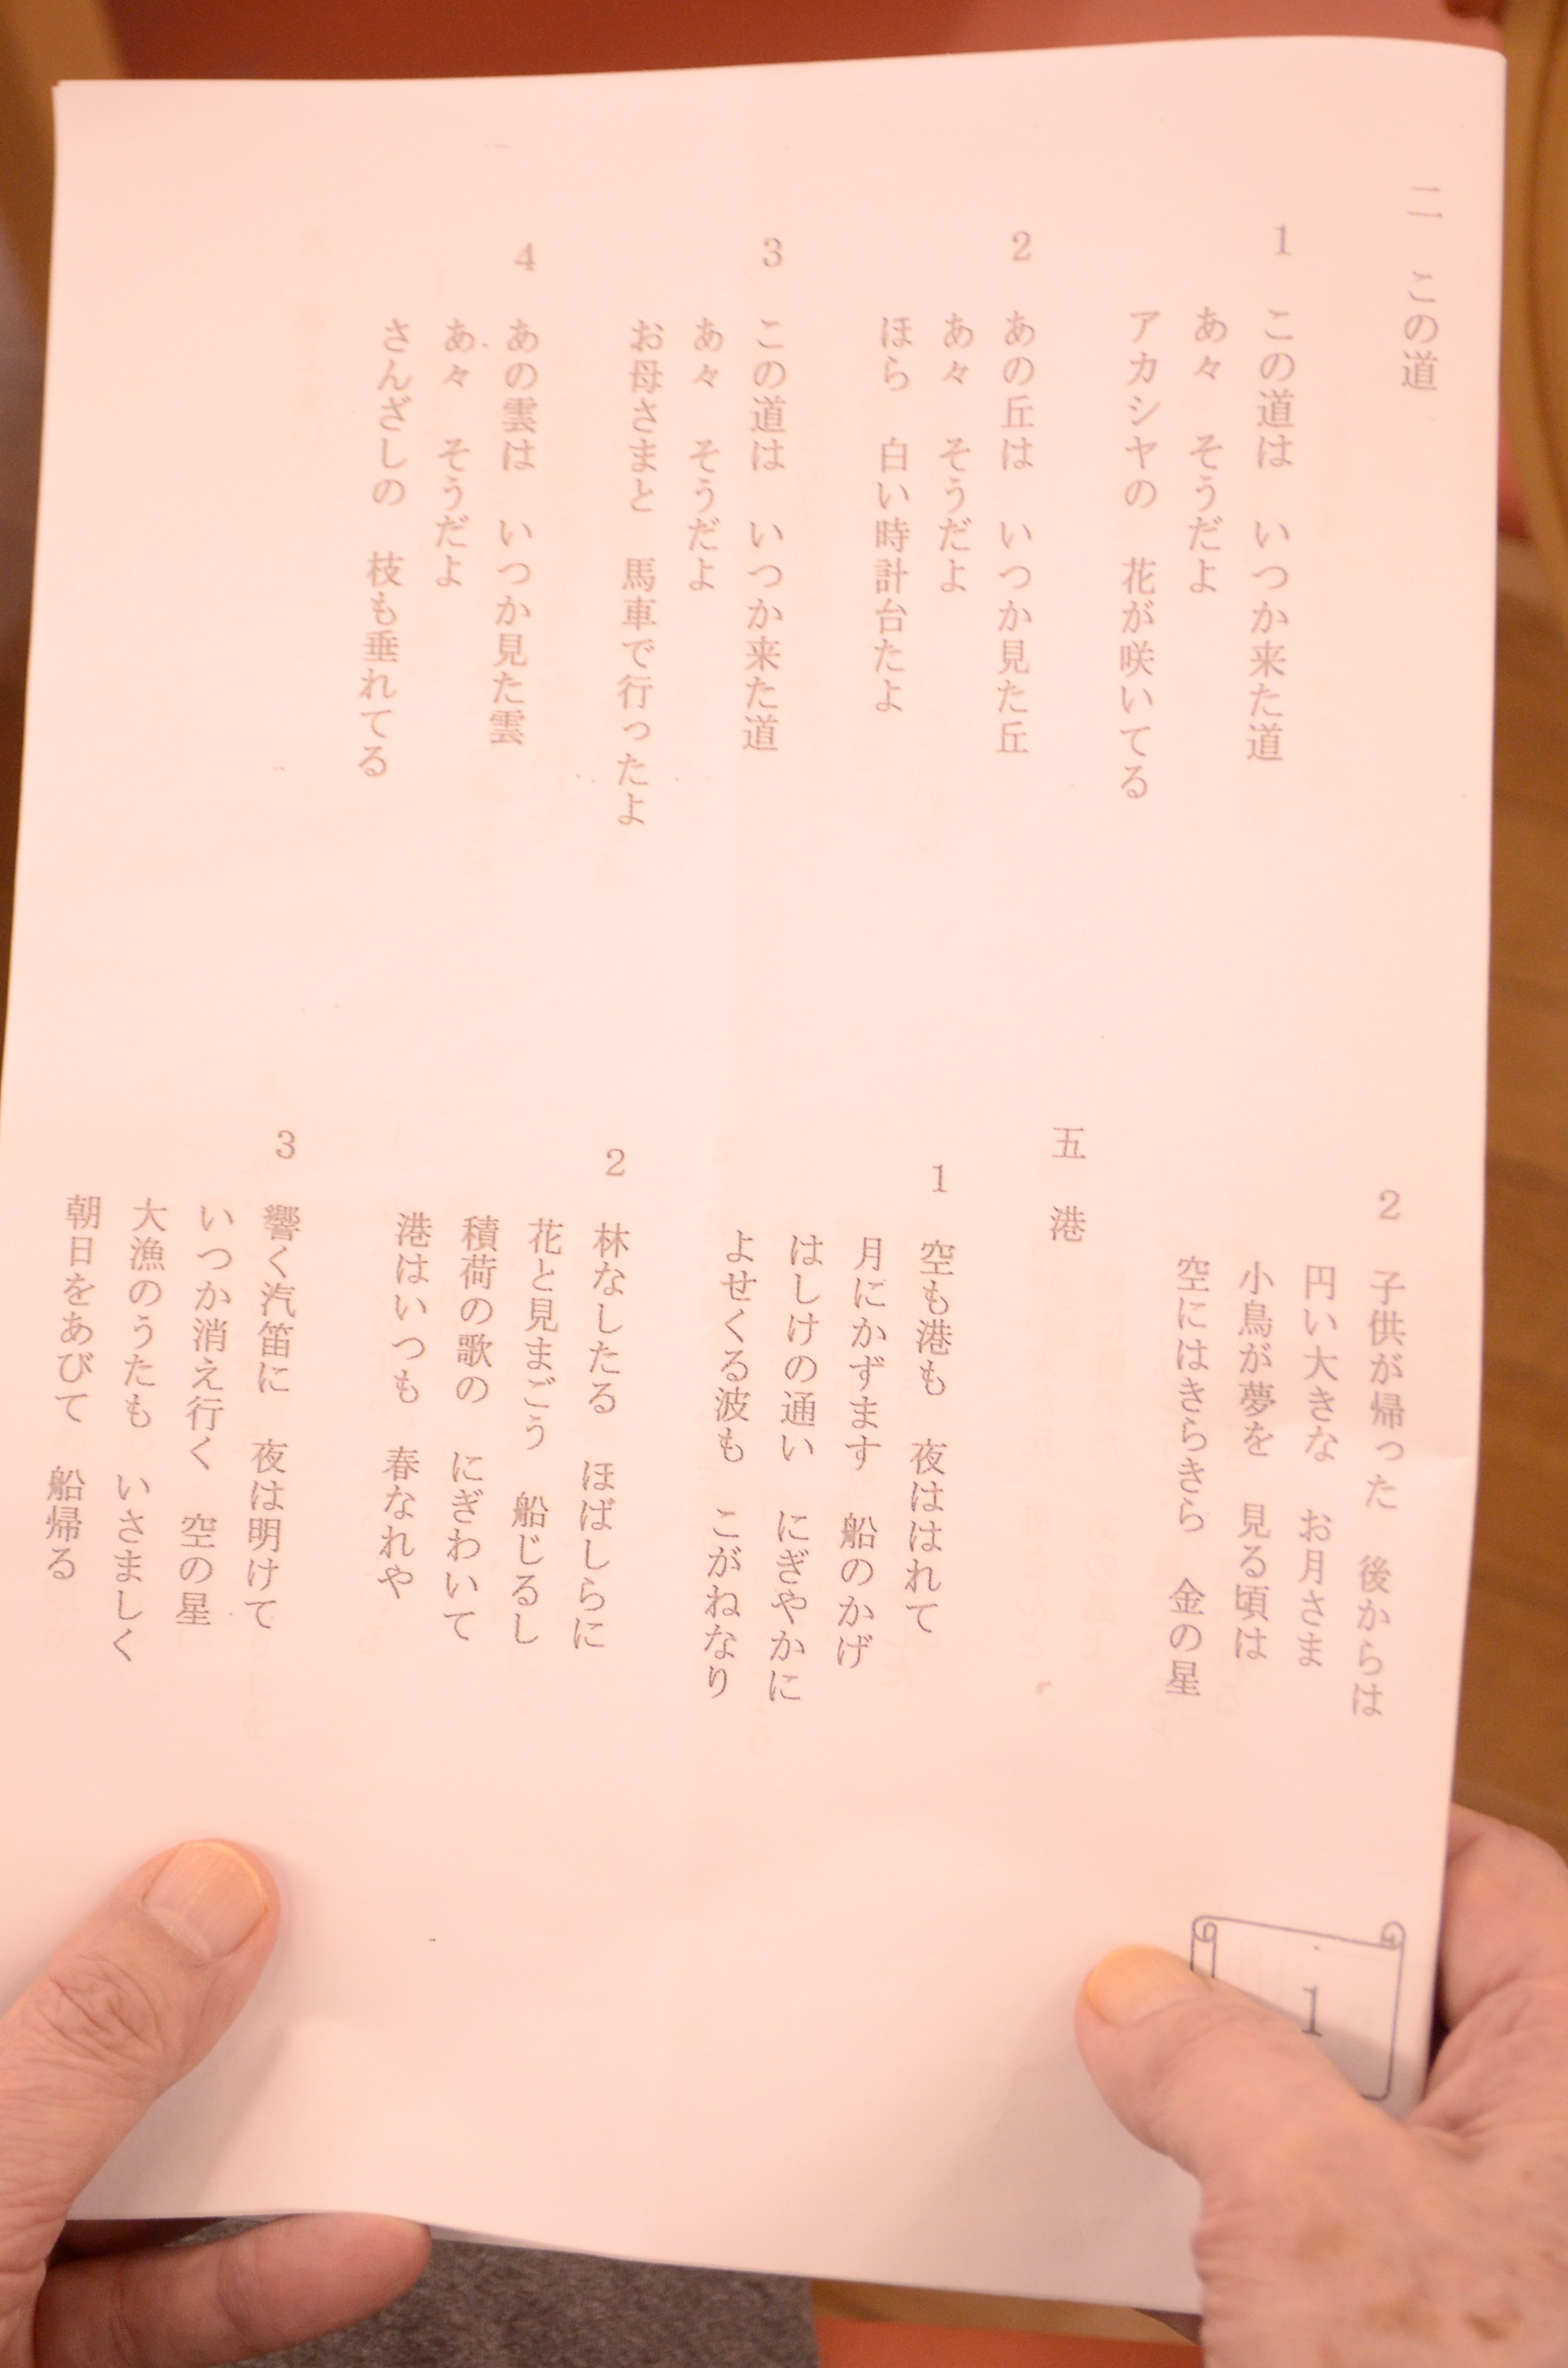 二　この道
1　この道は　いつか来た道
あ々　そうだよ
アカシヤの　花が咲いてる
2　あの丘は　いつか見た丘
あ々　そうだよ
ほら　白い時計台たよ
3　この道は　いつか来た道
あ々　そうだよ
お母さまと　馬車で行ったよ
4　あの雲は　いつか見た雲
あ々　そうだよ
さんざしの　枝も垂れてる
2　子供が帰った　後からは
円い大きな　お月さま
小鳥が夢を　見る頃は
空にはきらきら　金の星
五　港
1　空も港も　夜ははれて
月にかずます　船のかげ
はしけの通い　にぎやかに
よせくる波も　こがねなり
2　林なしたる　ほばしらに
花と見まごう　船じるし
積荷の歌の　にぎわいて
港はいつも　春なれや
3　響く汽笛に　夜は明けて
いつか消え行く　空の星
大漁のうたも　いさましく
朝日をあびて　船帰る
1